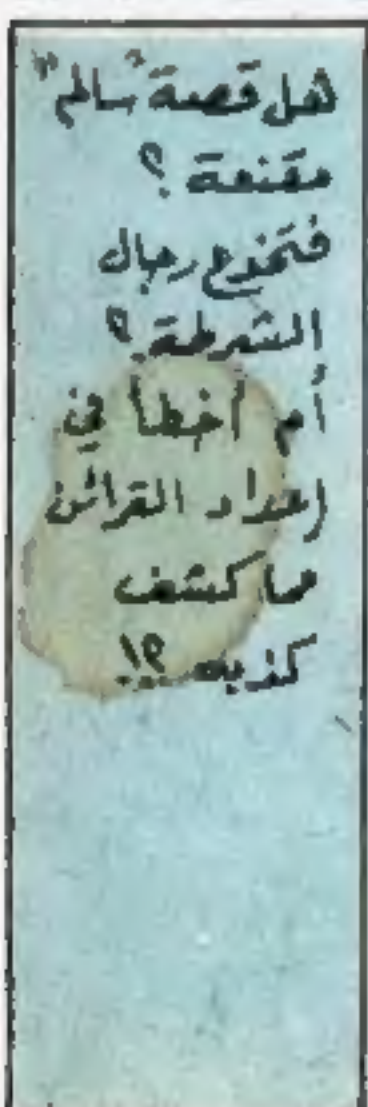 هل قصة "سالم"
مقنعة ؟
فتخدع رجال
الشرطة ؟
أم أخطأ في
إعداد القرائن
مما كشف
كذبه ..؟!